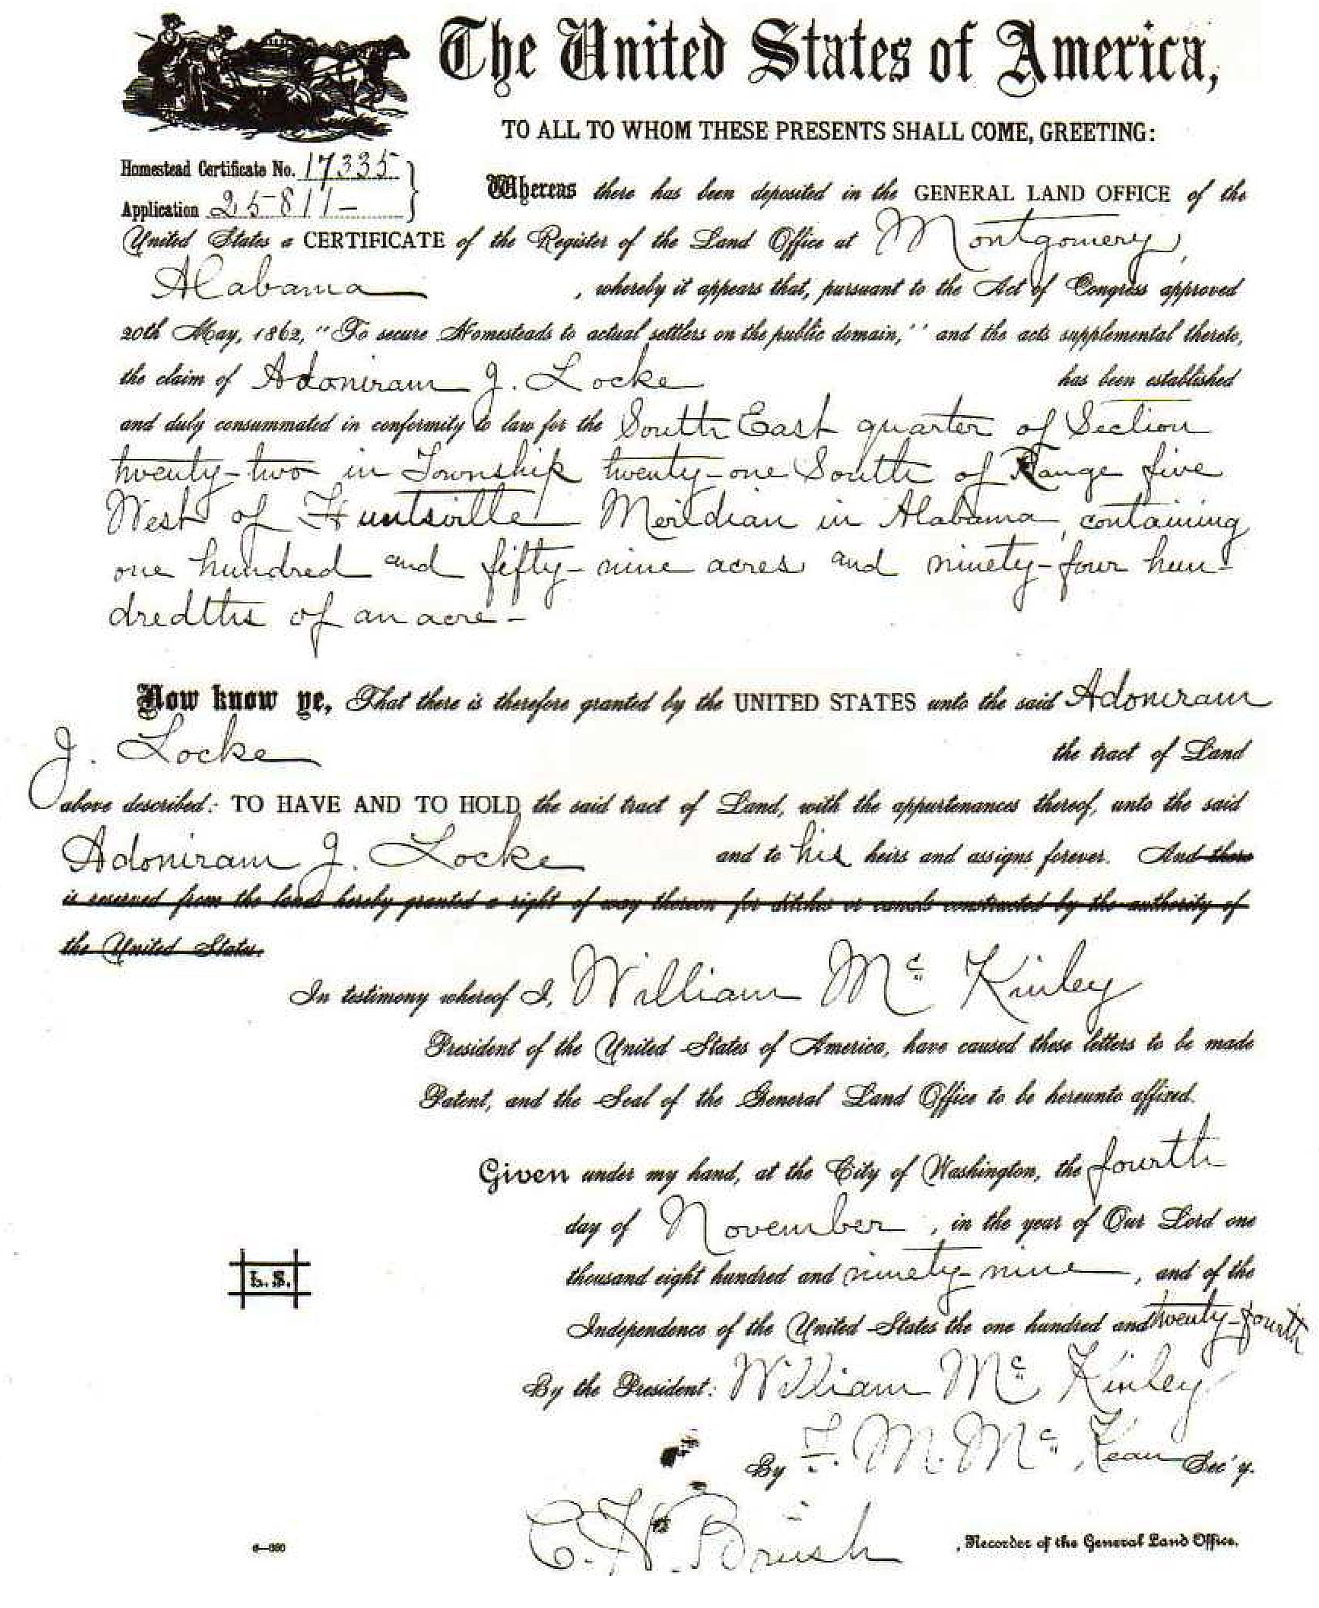 The United States of America,
TO ALL TO WHOM THESE PRESENTS SHALL COME, GREETING:
Homestead Certificate No. 17335
Application 25811-
Whereas there has been deposited in the GENERAL LAND OFFICE of the
United States a CERTIFICATE of the Register of the Land Office at Montgomery,
Alabama, whereby it appears that, pursuant to the Act of Congress approved
20th May, 1862, "To secure Homesteads to actual settlers on the public domain," and the acts supplemental thereto,
the claim of Adoniram J. Locke has been established
and duly consummated in conformity to law for the South East quarter of Section
twenty-two in Township twenty-one South of Range five
West of Huntsville Meridian in Alabama, containing
one hundred and fifty-nine acres and ninety-four hun-
dredths of an acre-
Now know ye, That there is therefore granted by the UNITED STATES unto the said Adoniram
J. Locke the tract of Land
above described: TO HAVE AND TO HOLD the said tract of Land, with the appurtenances thereof, unto the said
Adoniram J. Locke and to his heirs and assigns forever. And there
is reserved from the lands hereby granted a right of way thereon for ditches or canals constructed by the authority of
the United States.
In testimony whereof I, William McKinley
President of the United States of America, have caused these letters to be made
Patent, and the Seal of the General Land Office to be hereunto affixed.
Given under my hand, at the City of Washington, the fourth
day of November, in the year of Our Lord one
thousand eight hundred and ninety-nine, and of the
Independence of the United States the one hundred and twenty-fourth
L.S.
By the President: William McKinley
By F. M. McKean Sec'y.
C. H. Brush
, Recorder of the General Land Office.